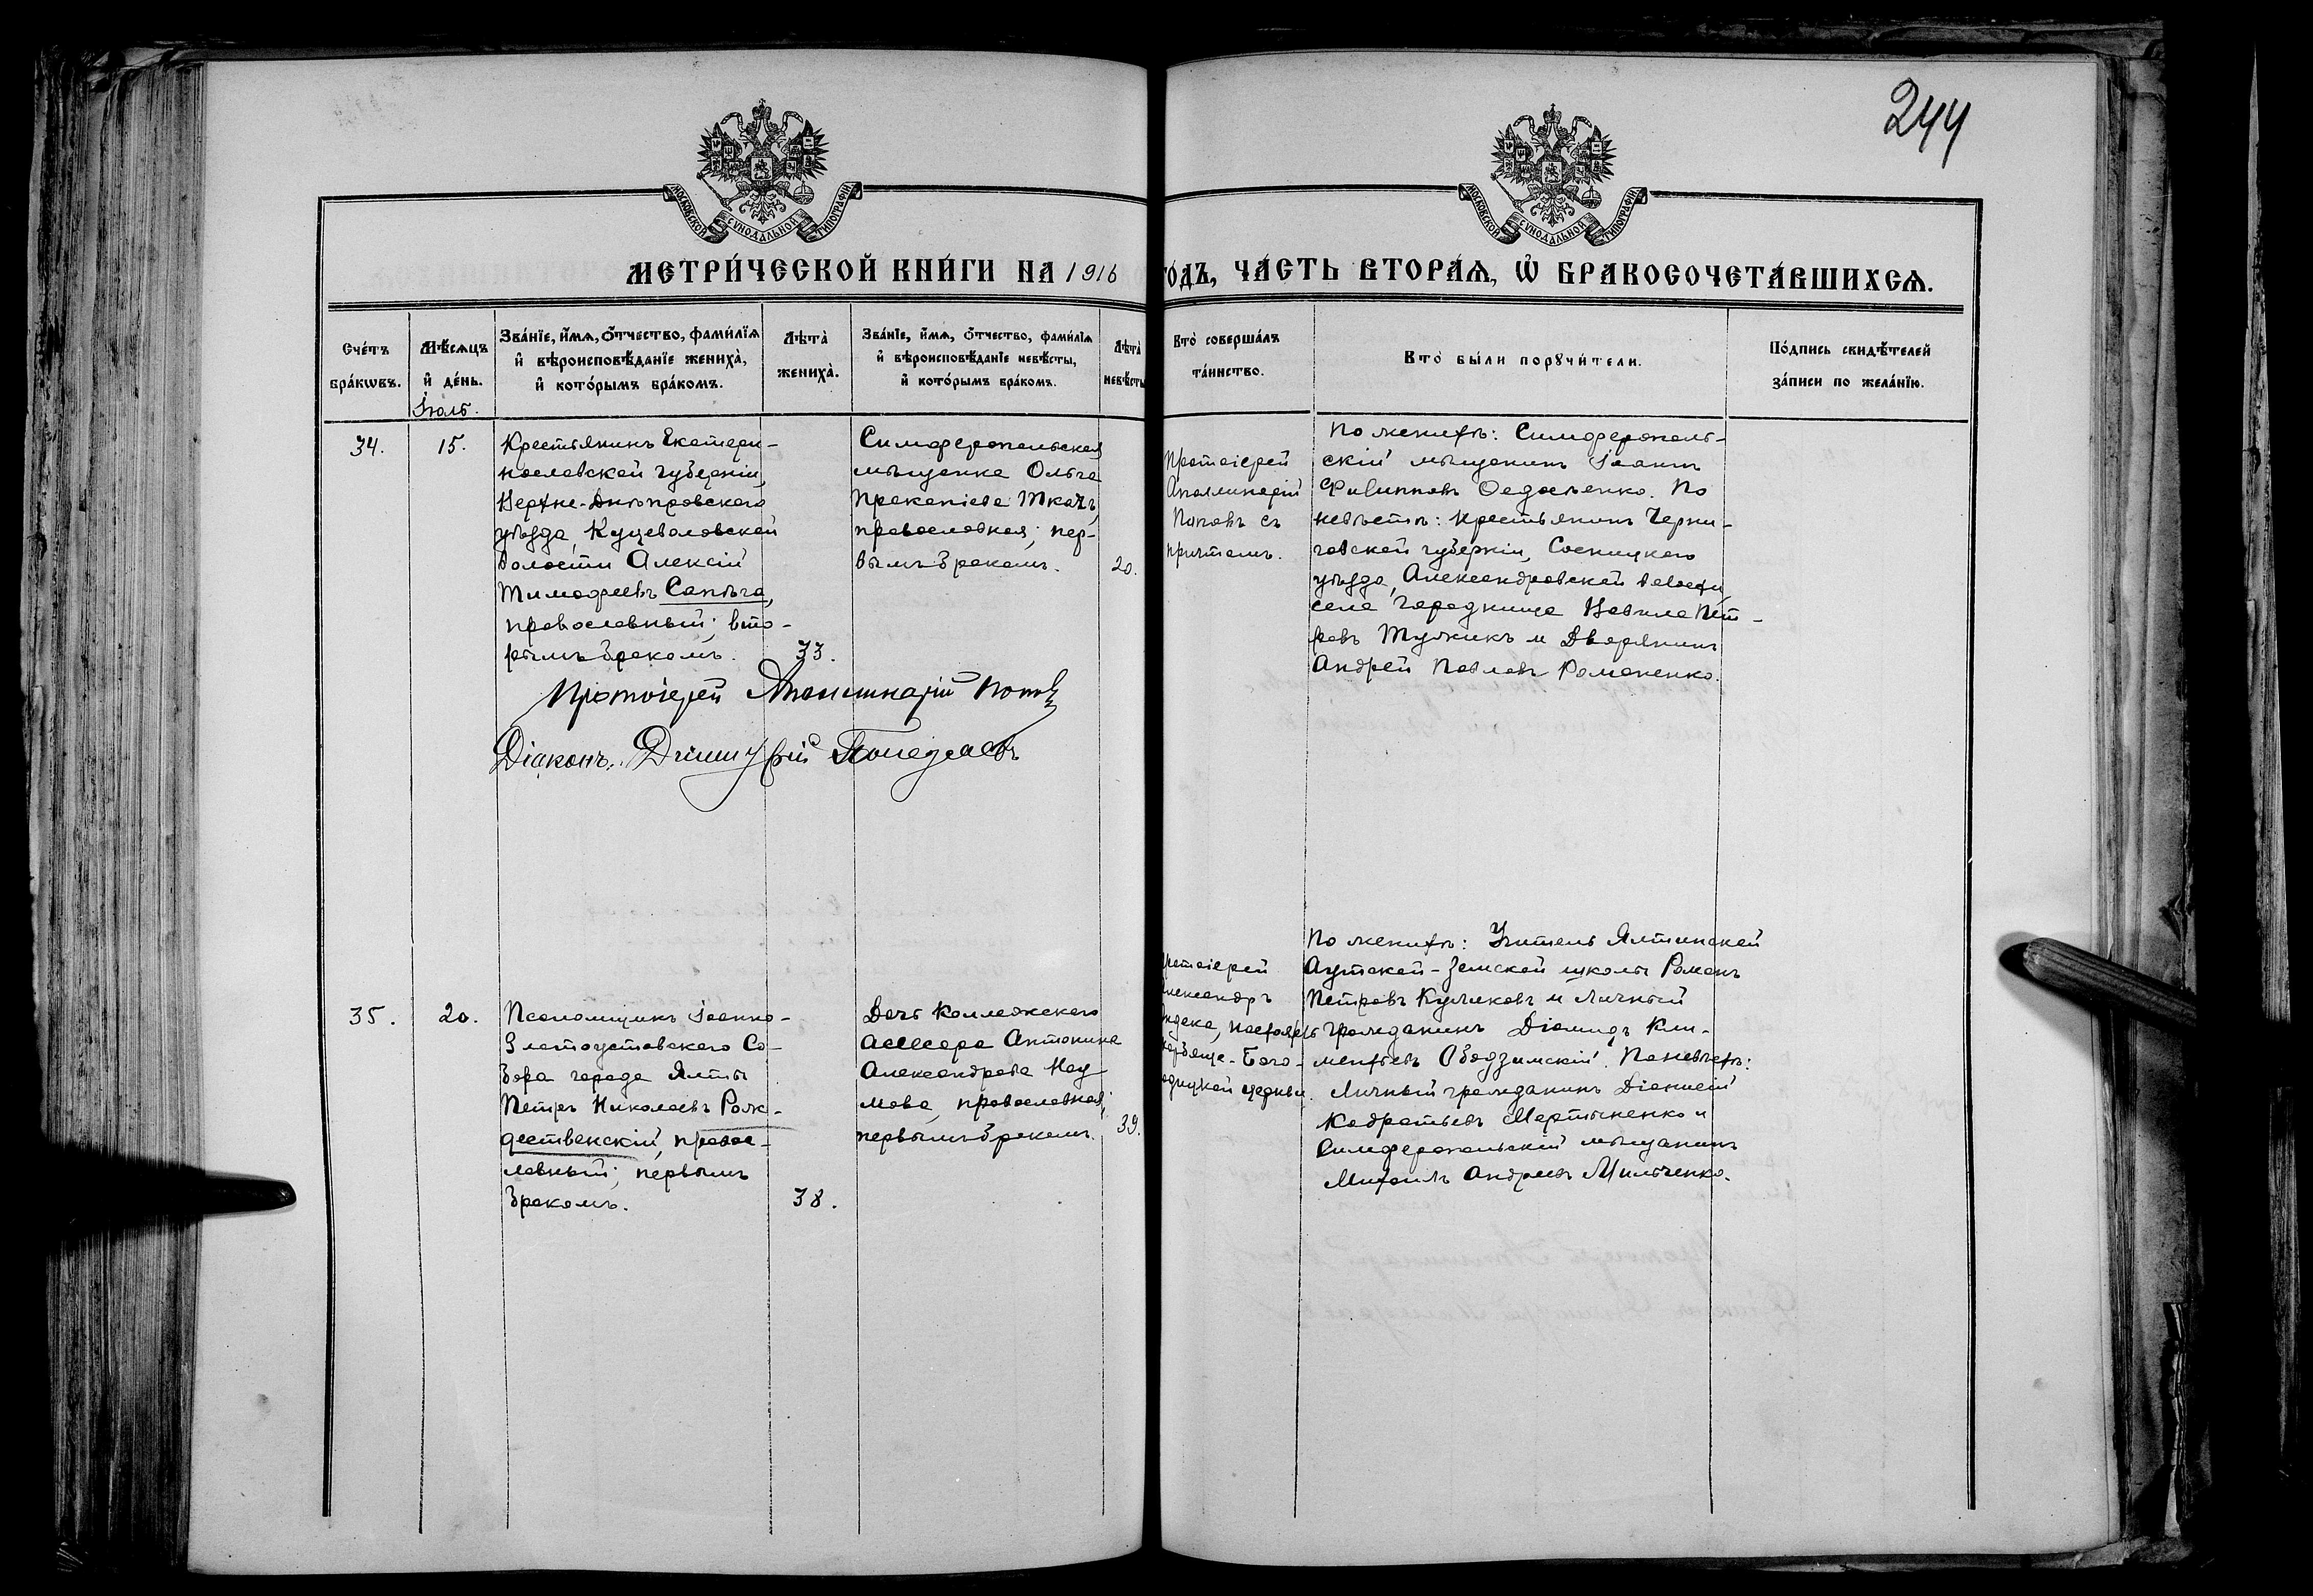 244
МОСКОВСКОЙ СѴНОДАЛЬНОЙ ТИПОГРАФІИ
МОСКОВСКОЙ СѴНОДАЛЬНОЙ ТИПОГРАФІИ
МЕТРИ́ЧЕСКОЙ КНИ́ГИ НА 1916
ГОДЪ, ЧА́СТЬ ВТОРА́Ѧ, Ѡ҆ БРАКОСОЧЕТА́ВШИХСѦ.
Сче́тъ
бра́кѡвъ.
Мѣ́сѧцъ
и҆ де́нь.
Іюль.
Зва́нїе, и҆́мѧ, ѻ҆́тчество, фами́лїѧ
и҆ вѣроисповѣ́данїе жениха̀,
и҆ кото́рымъ бра́комъ.
Лѣта̀
жениха̀.
Зва́нїе, и҆́мѧ, ѻ҆́тчество, фами́лїѧ
и҆ вѣроисповѣ́данїе невѣ́сты,
и҆ кото́рымъ бра́комъ.
Лѣта̀
невѣ́сты
Кто̀ соверша́лъ
та́инство.
Кто̀ бы́ли порꙋчи́тели.
По́дпись свидѣ́телей
за́писи по жела́нїю.
34.
15.
Крестьянинъ Екатери-
нославской губерніи,
Верхне-Днѣпровскаго
уѣзда, Куцеволовской
волости Алексій
Тимофеевъ Сапѣга,
православный; вто-
рымъ бракомъ.
33.
Симферопольская
мѣщанка Ольга
Прокопіева Ткачъ,
православная; пер-
вымъ бракомъ.
20.
Протоіерей
Аполлинарій
Поповъ съ
причтомъ.
По женихѣ: Симферополь-
скій мѣщанинъ Іоаннъ
Филипповъ Федосенко. По
невѣстѣ: крестьянинъ Черни-
говской губерніи, Сосницкаго
уѣзда, Александровской волости
села Городища Вавила Пет-
ровъ Тужикъ и Дворянинъ
Андрей Павловъ Романенко.
Протоіерей Аполлинарій Поповъ
Діаконъ Димитрій
35.
20.
Псаломщикъ Іоанно-
Златоустовскаго Со-
бора города Ялты
Петръ Николаевъ Рож-
дественскій, право-
славный; первымъ
бракомъ.
38.
Дочь Коллежскаго
Асессора Антонина
Александрова Нау-
мова, православная;
первымъ бракомъ.
39.
ротоіерей
лександръ
ндака,
орбяще-Бого-
одицкой церкви.
По женихѣ: Учитель Ялтинской
Аутской-Земской школы Романъ
Петровъ Куликовъ и Личный
гражданинъ Діомидъ Кли-
ментьевъ Ободзимскій. По невѣстѣ:
Личный гражданинъ Діонисій
Кодратьевъ Мартыненко и
Симферопольскій мѣщанинъ
Михаилъ Андреевъ Мильченко.